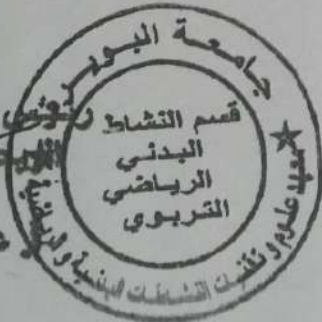 جامعة البويرة
قسم النشاط
البدني
الرياضي
التربوي
معهد علوم و تقنيات النشاطات البدنية والرياضية